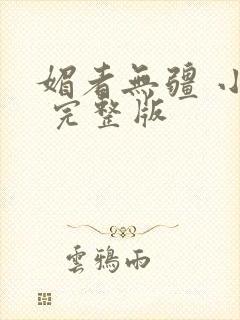 媚者無疆 小
完整版
雲鴉雨